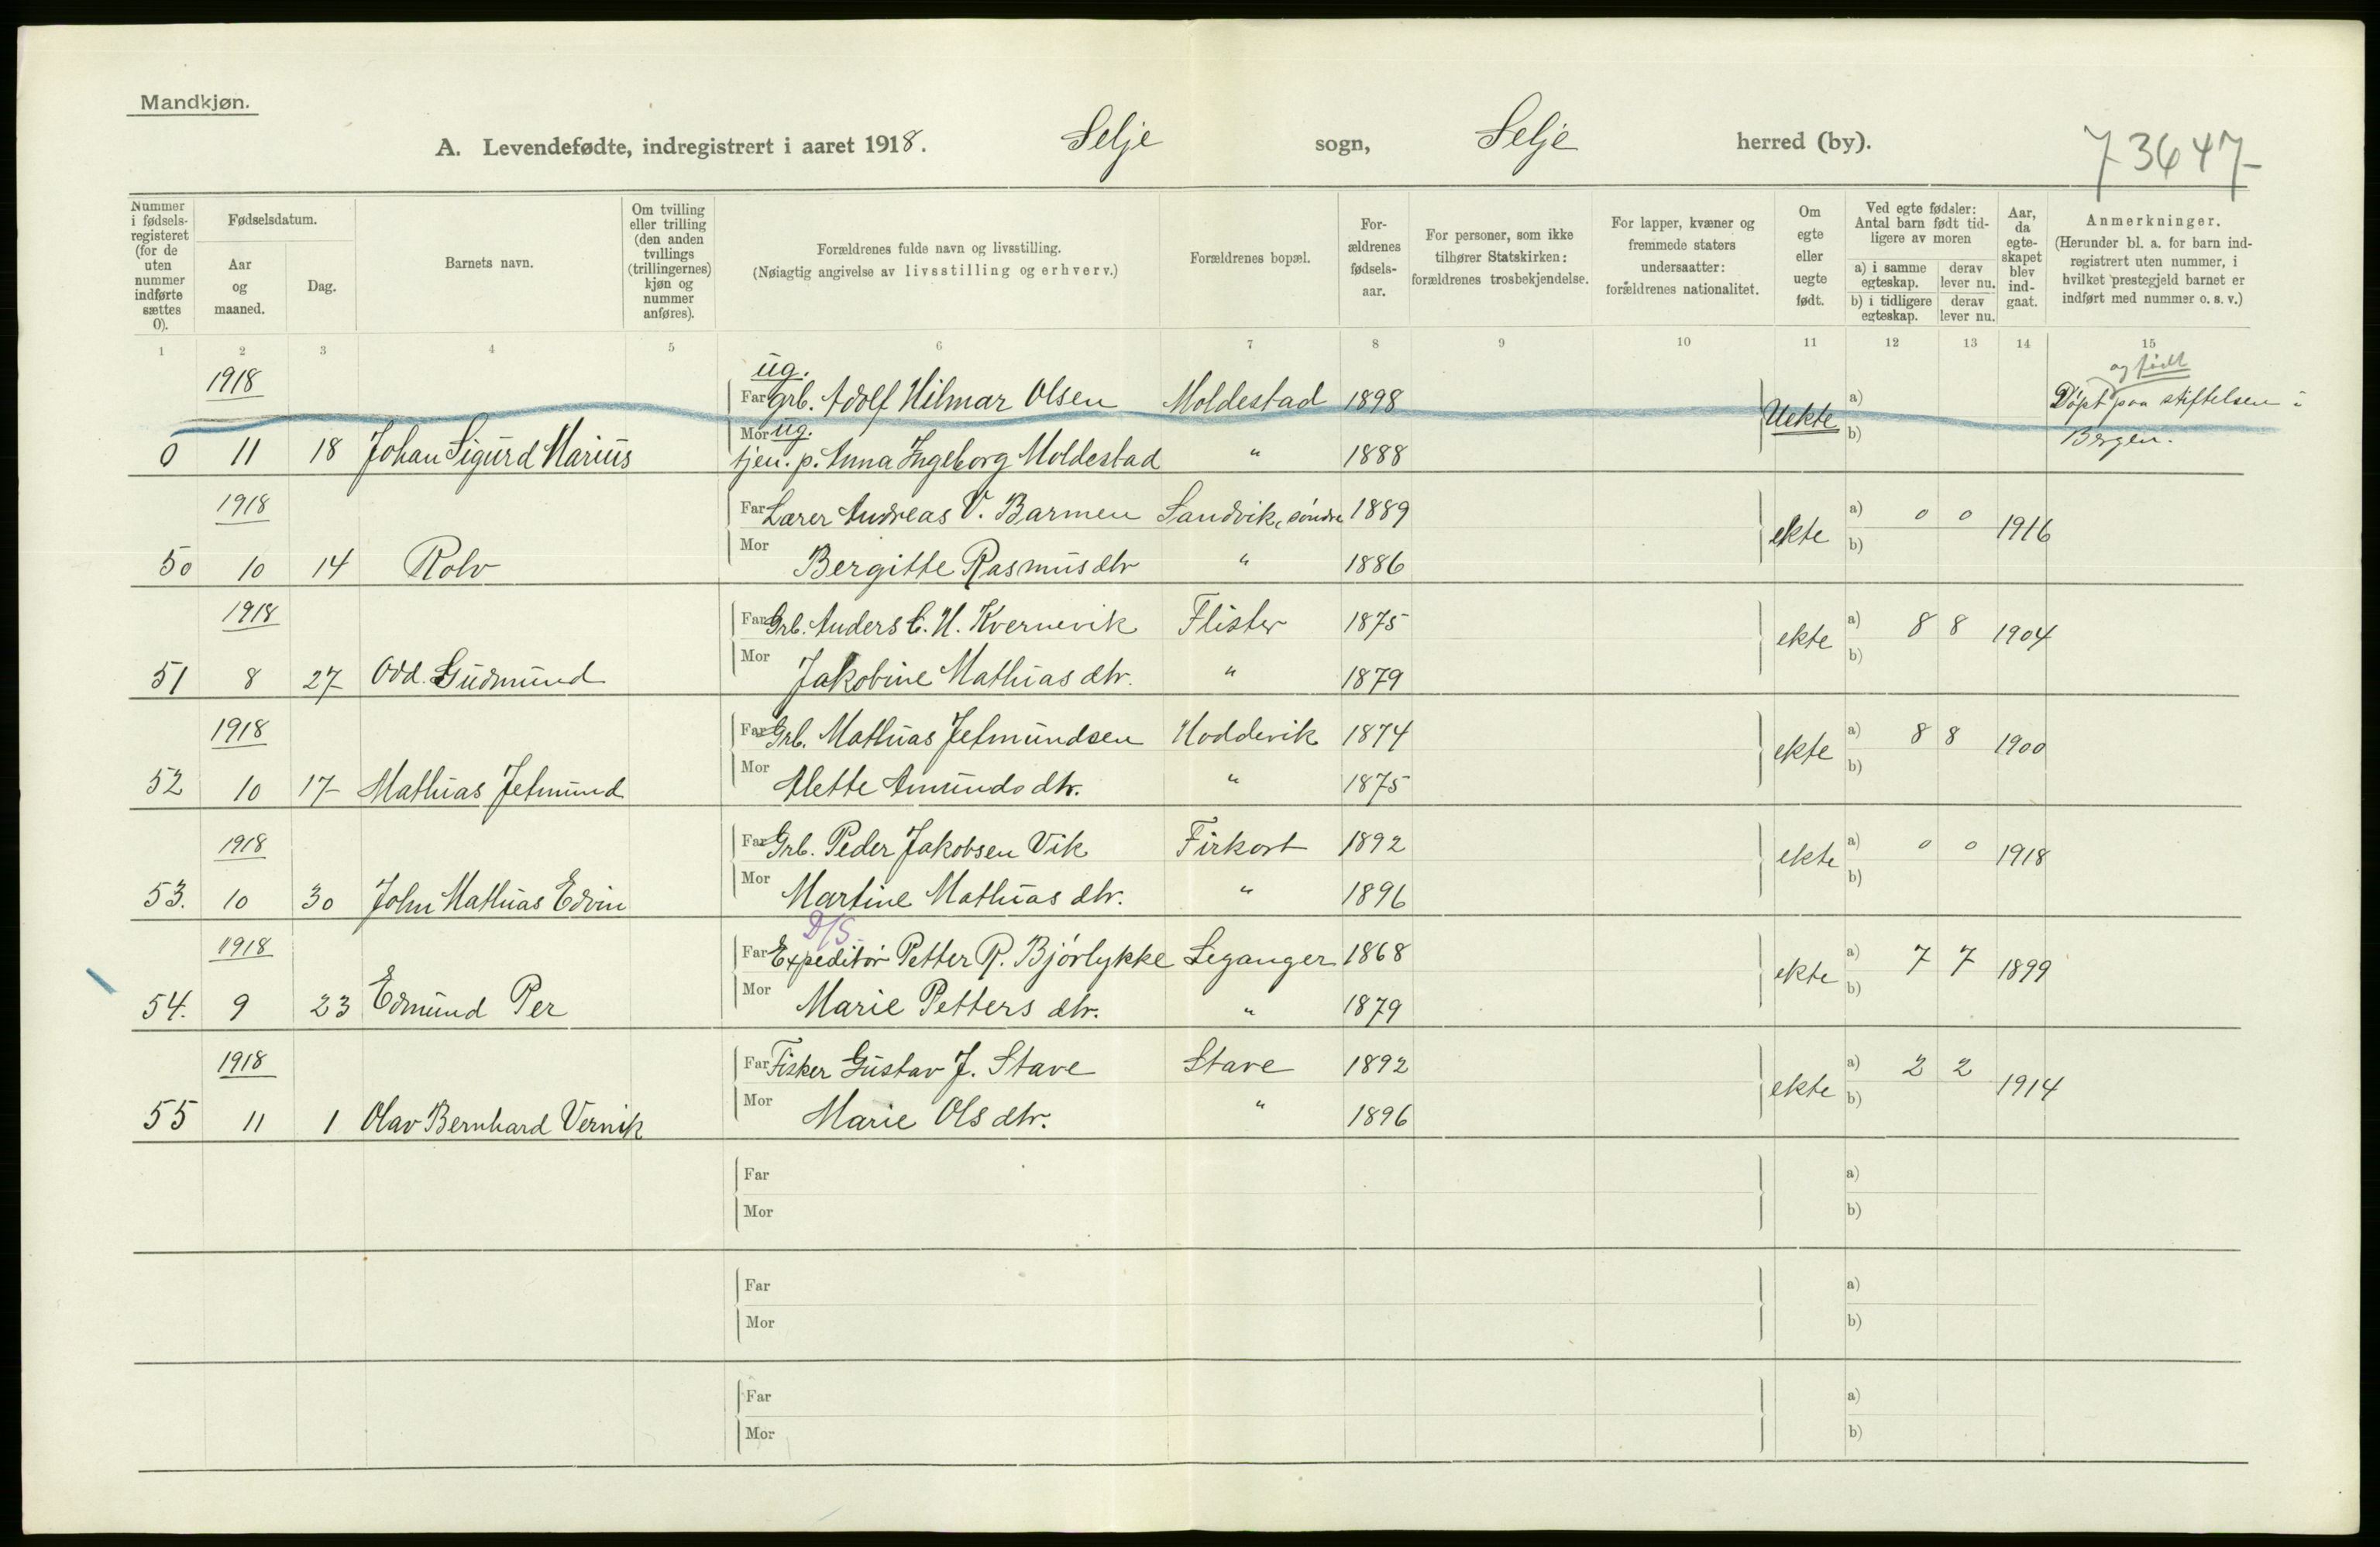 Mandkjøn.
A. Levendefødte, indregistrert i aaret 1918. Selje sogn, Selje herred (by). 73647
Nummer i fødsels-registeret (for de uten nummer indførte sættes 0).
Fødselsdatum.
Aar og maaned.
Dag.
Barnets navn.
Om tvilling eller trilling (den anden tvillings (trillingernes) kjøn og nummer anføres).
Forældrenes fulde navn og livsstilling.
(Nøiagtig angivelse av livsstilling og erhverv.)
Forældrenes bopæl.
For-ældrenes fødsels-aar.
For personer, som ikke tilhører Statskirken: forældrenes trosbekjendelse.
For lapper, kvæner og fremmede staters undersaatter: forældrenes nationalitet.
Om egte eller uegte født.
Ved egte fødsler: Antal barn født tid-ligere av moren
a) i samme egteskap. derav lever nu.
b) i tidligere egteskap. derav lever nu.
Aar, da egte-skapet blev ind-gaat.
Anmerkninger.
(Herunder bl. a. for barn ind-registrert uten nummer, i hvilket prestegjeld barnet er indført med nummer o. s. v.)
1 2 3 4 5 6 7 8 9 10 11 12 13 14 15
1918 ug. og født
Far grb. Adolf Hilmar Olsen Moldestad 1898 Uekte a) Døpt paa stiftelsen i
0 11 18 Johan Sigurd Marius Mor ug. tjen. p. Anna Ingeborg Moldestad " 1888 b) Bergen.
1918 Far Lærer Andreas V. Barmen Sandvik, søndre 1889 ekte a) 0 0 1916
50 10 14 Rolv Mor Bergitte Rasmusdtr " 1886 b)
1918 Far Grb. Anders C. H. Kvernevik Flister 1875 ekte a) 8 8 1904
51 8 27 Odd. Gudmund Mor Jakobine Mathias dtr. " 1879 b)
1918 Far Grb. Mathias Jetmundsen Hoddevik 1874 ekte a) 8 8 1900
52 10 17 Mathias Jetmund Mor Alette Amunds dtr. " 1875 b)
1918 Far Grb. Peder Jakobsen Vik Firkort 1892 ekte a) 0 0 1918
53. 10 30 John Mathias Edvin Mor Martine Mathias dtr. " 1896 b)
D/S
1918 Far Expeditør Petter R. Bjørlykke Leganger 1868 ekte a) 7 7 1899
54. 9 23 Edmund Per Mor Marie Petters dtr. " 1879 b)
1918 Far Fisker Gustav J. Stave Stave 1892 ekte a) 2 2 1914
55 11 1 Olav Bernhard Vernik Mor Marie Ols dtr. " 1896 b)
Far a)
Mor b)
Far a)
Mor b)
Far a)
Mor b)